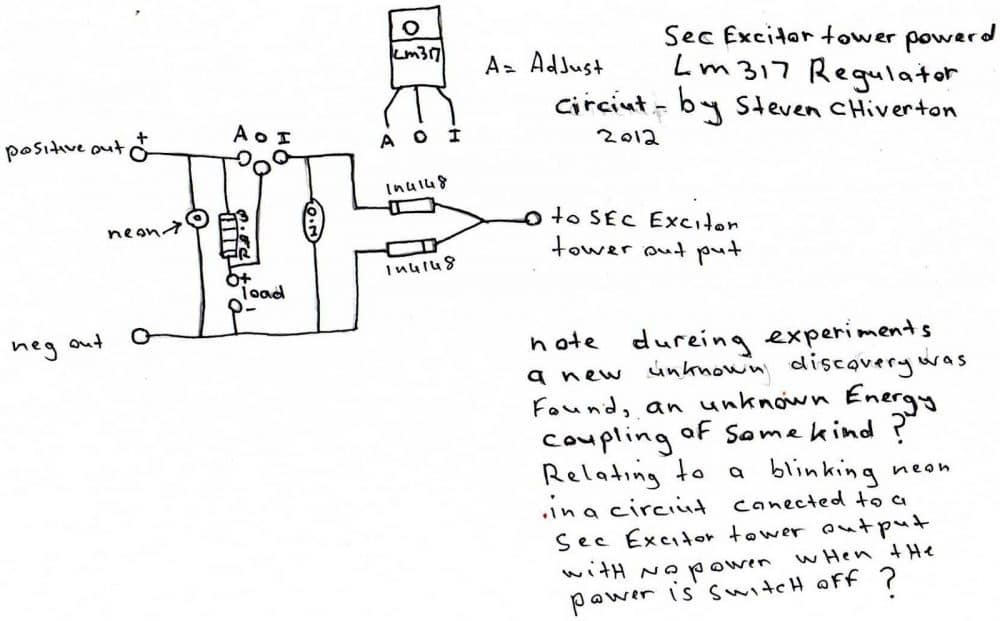 Sec Excitor tower powerd
Lm317 Regulator
circiut - by Steven CHiverton
2012
Lm317
A = AdJust
A O I
positive out +
A O I
neon
3.9R
0.1
+
load
-
neg out
1n4148
1n4148
to SEC Excitor
tower out put
note dureing experiments
a new unknown discovery was
Found, an unknown Energy
coupling of some kind ?
Relating to a blinking neon
in a circiut conected to a
Sec Exciter tower output
witH No power wHen tHe
power is switcH off ?